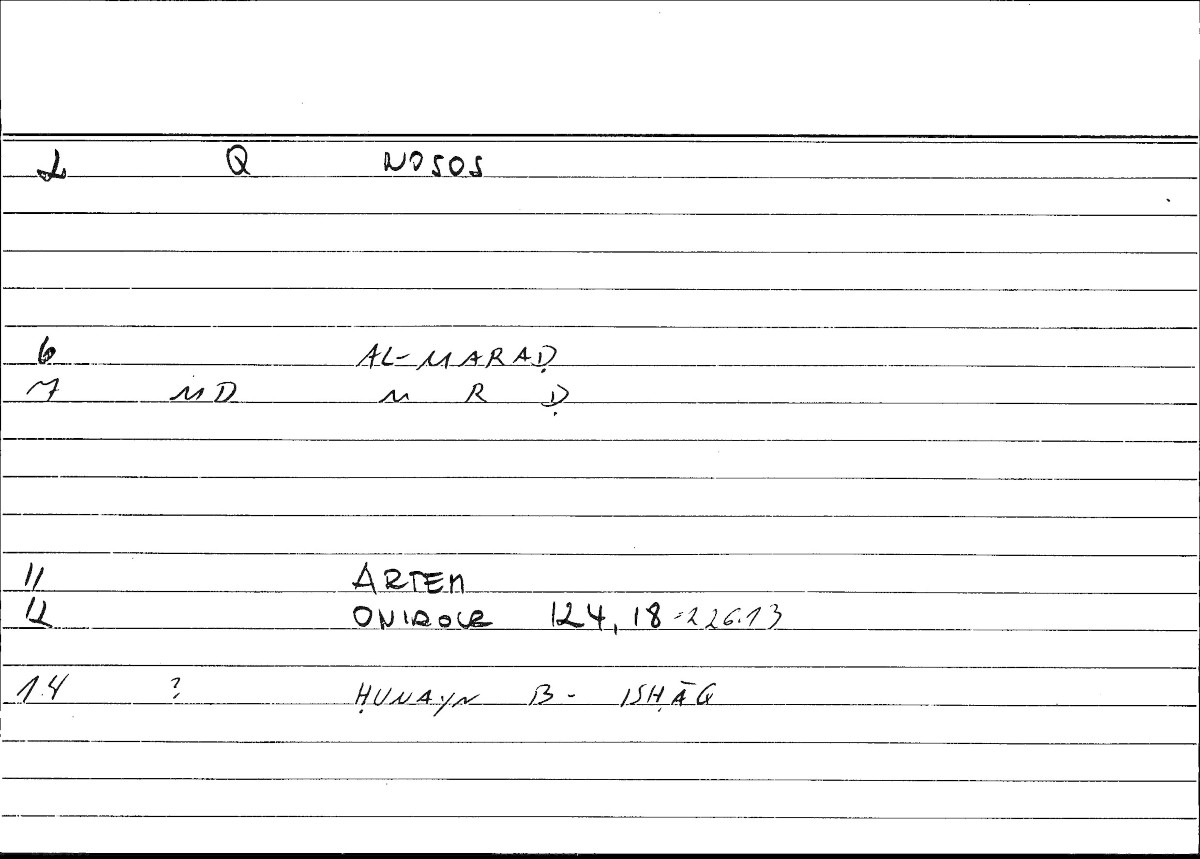 2 Q NOSOS
6 AL-MARAḌ
7 MD M R Ḍ
11 ARTEM
12 ONIROCR 124, 18 = 226.13
14 ? ḤUNAYN B- ISḤĀQ